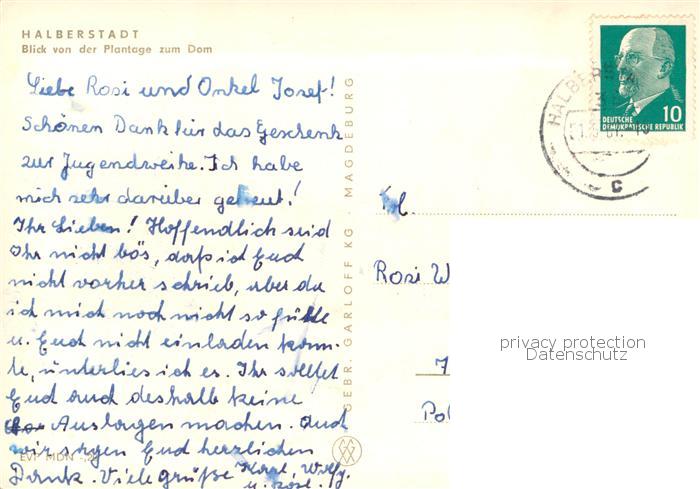 HALBERSTADT
Blick von der Plantage zum Dom
Liebe Rosi und Onkel Josef!
Schönen Dank für das Geschenk
zur Jugendweihe. Ich habe
mich sehr darüber gefreut!
Ihr Lieben! Hoffendlich seid
Ihr nicht bös, daß ich Euch
nicht vorher schrieb, aber da
ich mich noch nicht so fühlte
u. Euch nicht einladen konn-
te, unterlies ich es. Ihr solltet
Euch auch deshalb keine
Auslagen machen. Auch
wir sagen Euch herzlichen
Dank. Viele Grüße Horst, Wolfg.
u.
EVP MDN
GEBR. GARLOFF KG · MAGDEBURG
HALBERSTADT
c
10
DEUTSCHE
DEMOKRATISCHE REPUBLIK
Rosi W
7
Pol
privacy protection
Datenschutz